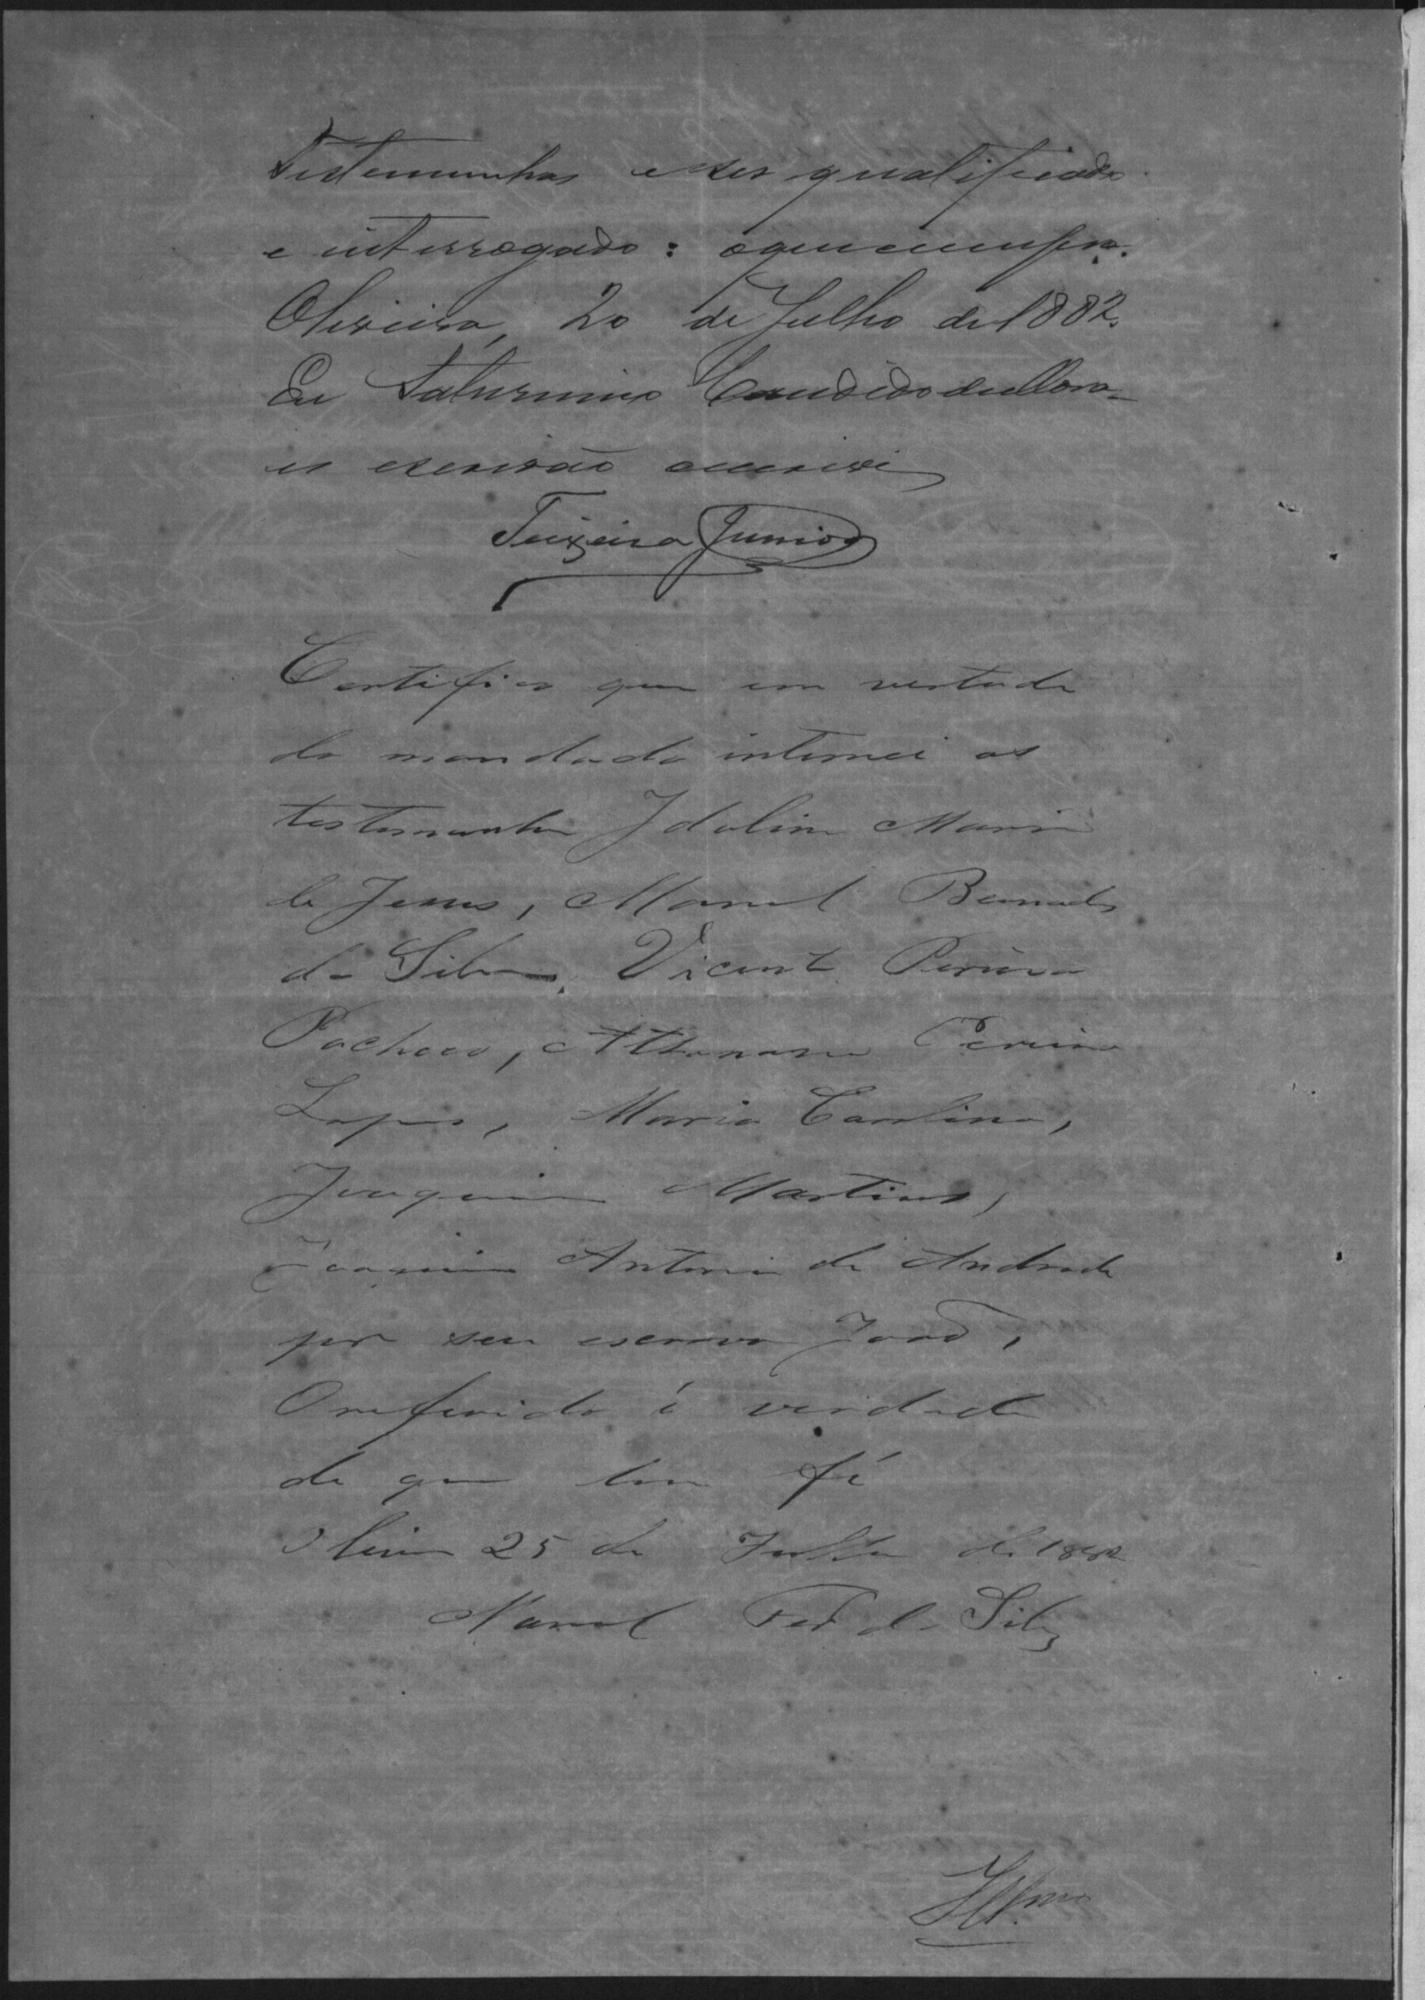 testemunhas e ser qualificado
e interrogado: o que cumpra.
Oliveira, 20 de Julho de 1882.
Eu Saturnino Candido de Mora-
es escrivão escrevi
Teixeira Junior
Certifico que em vertude
do mandado intimei as
testemunhas Idolina Maria
de Jesus, Manoel Bernardes
da Silva, Vicente Pereira
Pacheco, Athanasio Pereira
Lopes, Maria Carolina,
Joaquim Martins,
Joaquim Antonio de Andrade
por seu escravo João,
O referido é verdade
de que dou fé
Oliveira 25 de Julho de 1882
Manoel Fer da Silva
Illmo